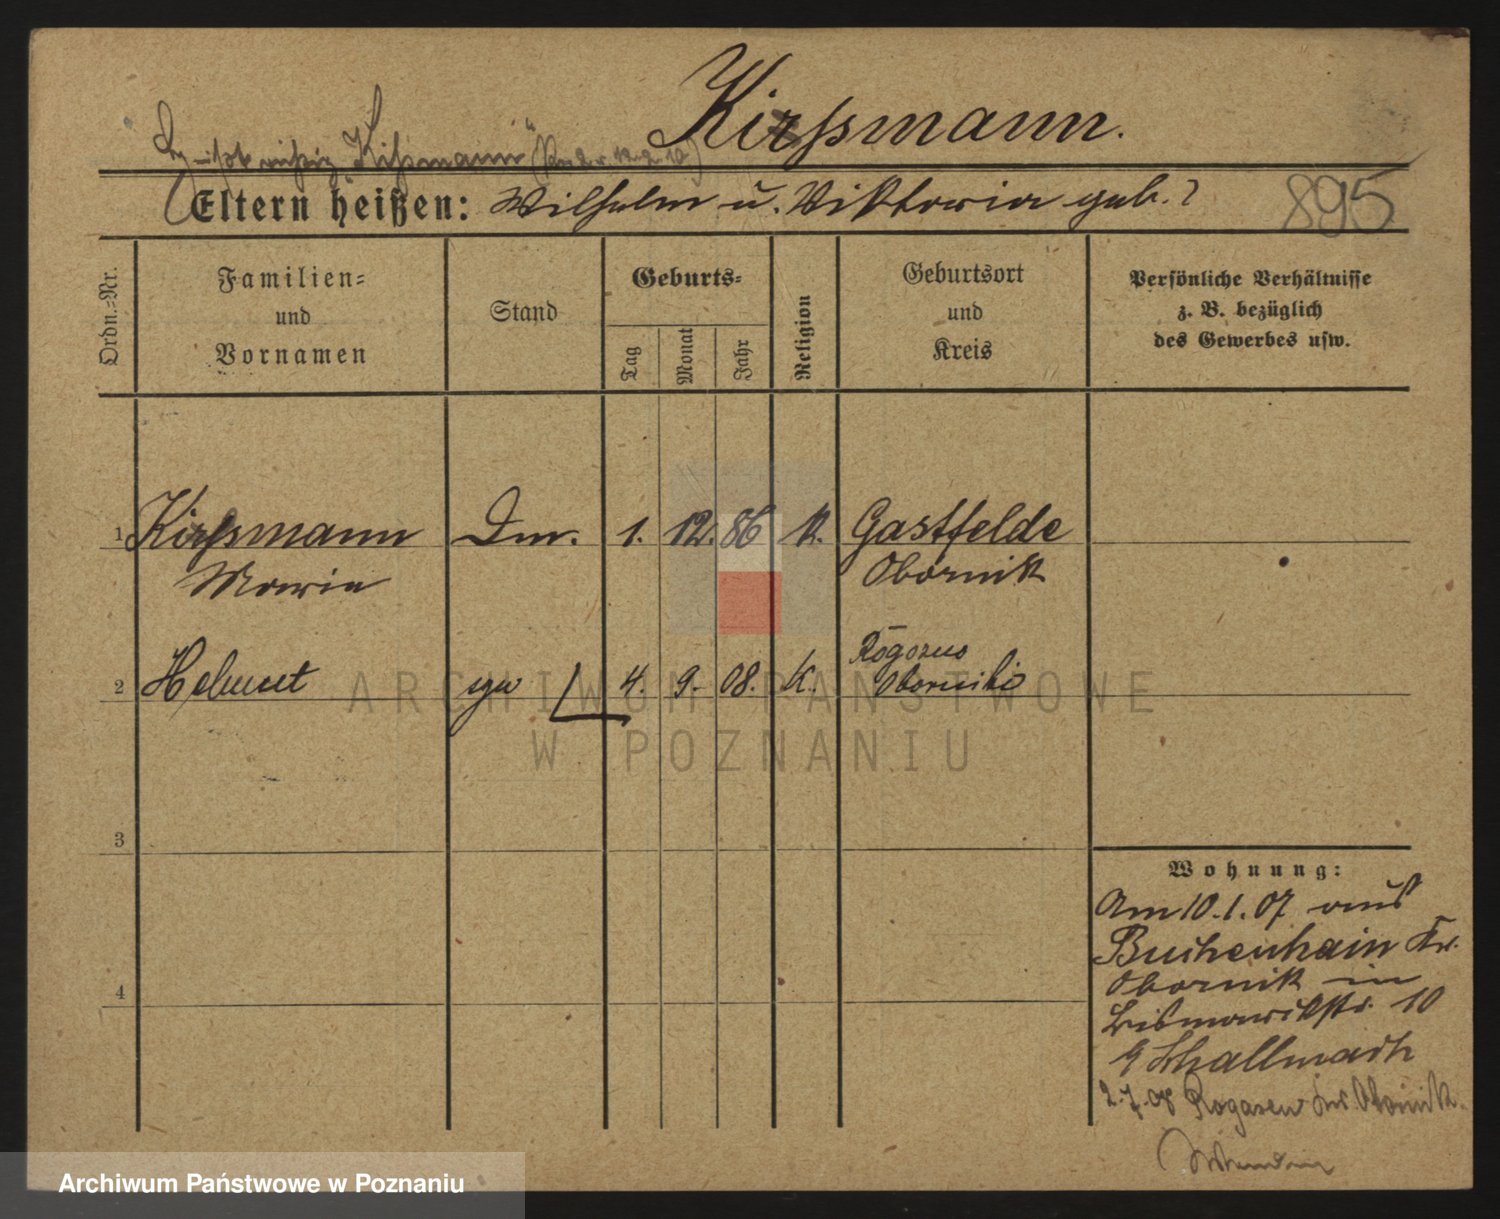 Kirßmann.
richtig "Kißmann"
Eltern heißen: Wilhelm u. Viktoria geb. ?
895
Ordn.=Nr.
Familien=
und
Vornamen
Stand
Geburts=
Tag
Monat
Jahr
Religion
Geburtsort
und
Kreis
Persönliche Verhältnisse
z. B. bezüglich
des Gewerbes usw.
1 Kirßmann Dm. 1. 12. 86 K. Gastfelde
Maria Obornik
2 Helmut 4. 9. 08. K. Rogozno
Oborniki
3
4
Wohnung:
Am 10.1.07 aus
Buchenhain Kr.
Obornik in
Bismarckstr. 10
b Schallmach
2.7.08 Rogasen Kr. Obornik.
ARCHIWUM PAŃSTWOWE
W POZNANIU
Archiwum Państwowe w Poznaniu